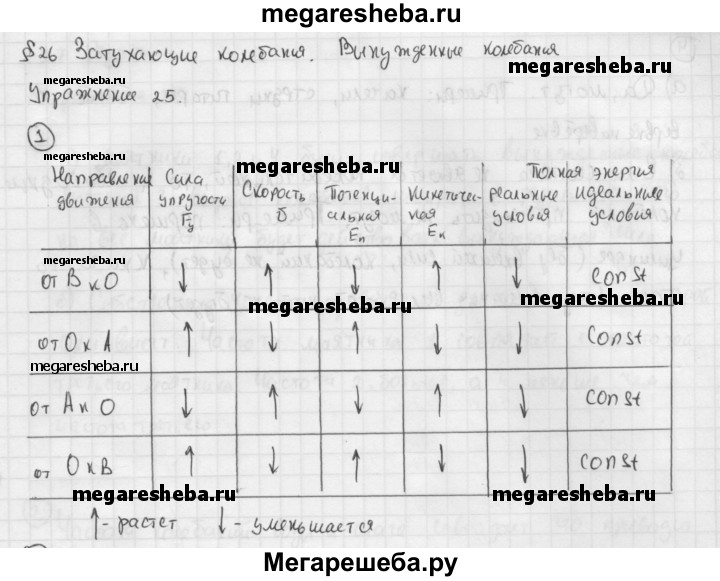 megaresheba.ru
§26 Затухающие колебания. Вынужденные колебания
megaresheba.ru
megaresheba.ru
Упражнение 25.
1
megaresheba.ru
Направление движения | Сила упругости Fу | Скорость | Потенциальная Eп | Кинетическая Eк | Полная энергия реальные условия | идеальные условия
от В к О ↓ ↑ ↓ ↑ ↓ const
megaresheba.ru
megaresheba.ru
от О к А ↑ ↓ ↑ ↓ ↓ const
megaresheba.ru
от А к О ↓ ↑ ↓ ↑ ↓ const
от О к В ↑ ↓ ↑ ↓ ↓ const
megaresheba.ru
megaresheba.ru
↑ - растет ↓ - уменьшается
Мегарешеба.ру